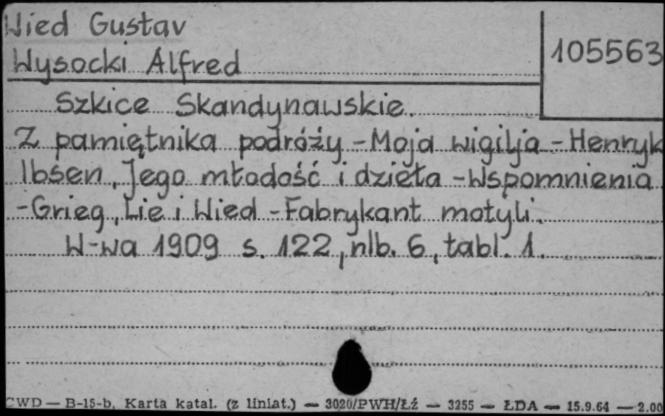 Wied Gustav
Wysocki Alfred
105563
Szkice Skandynawskie.
Z pamiętnika podróży - Moja wigilja - Henryk
Ibsen, Jego młodość i dzieła - Wspomnienia
- Grieg, Lie i Wied - Fabrykant motyli.
W-wa 1909 s. 122, nlb. 6, tabl. 1.
CWD — B-15-b, Karta katal. (z liniat.) — 3020/PWH/Łź — 3255 — ŁDA — 15.9.64 — 2.00